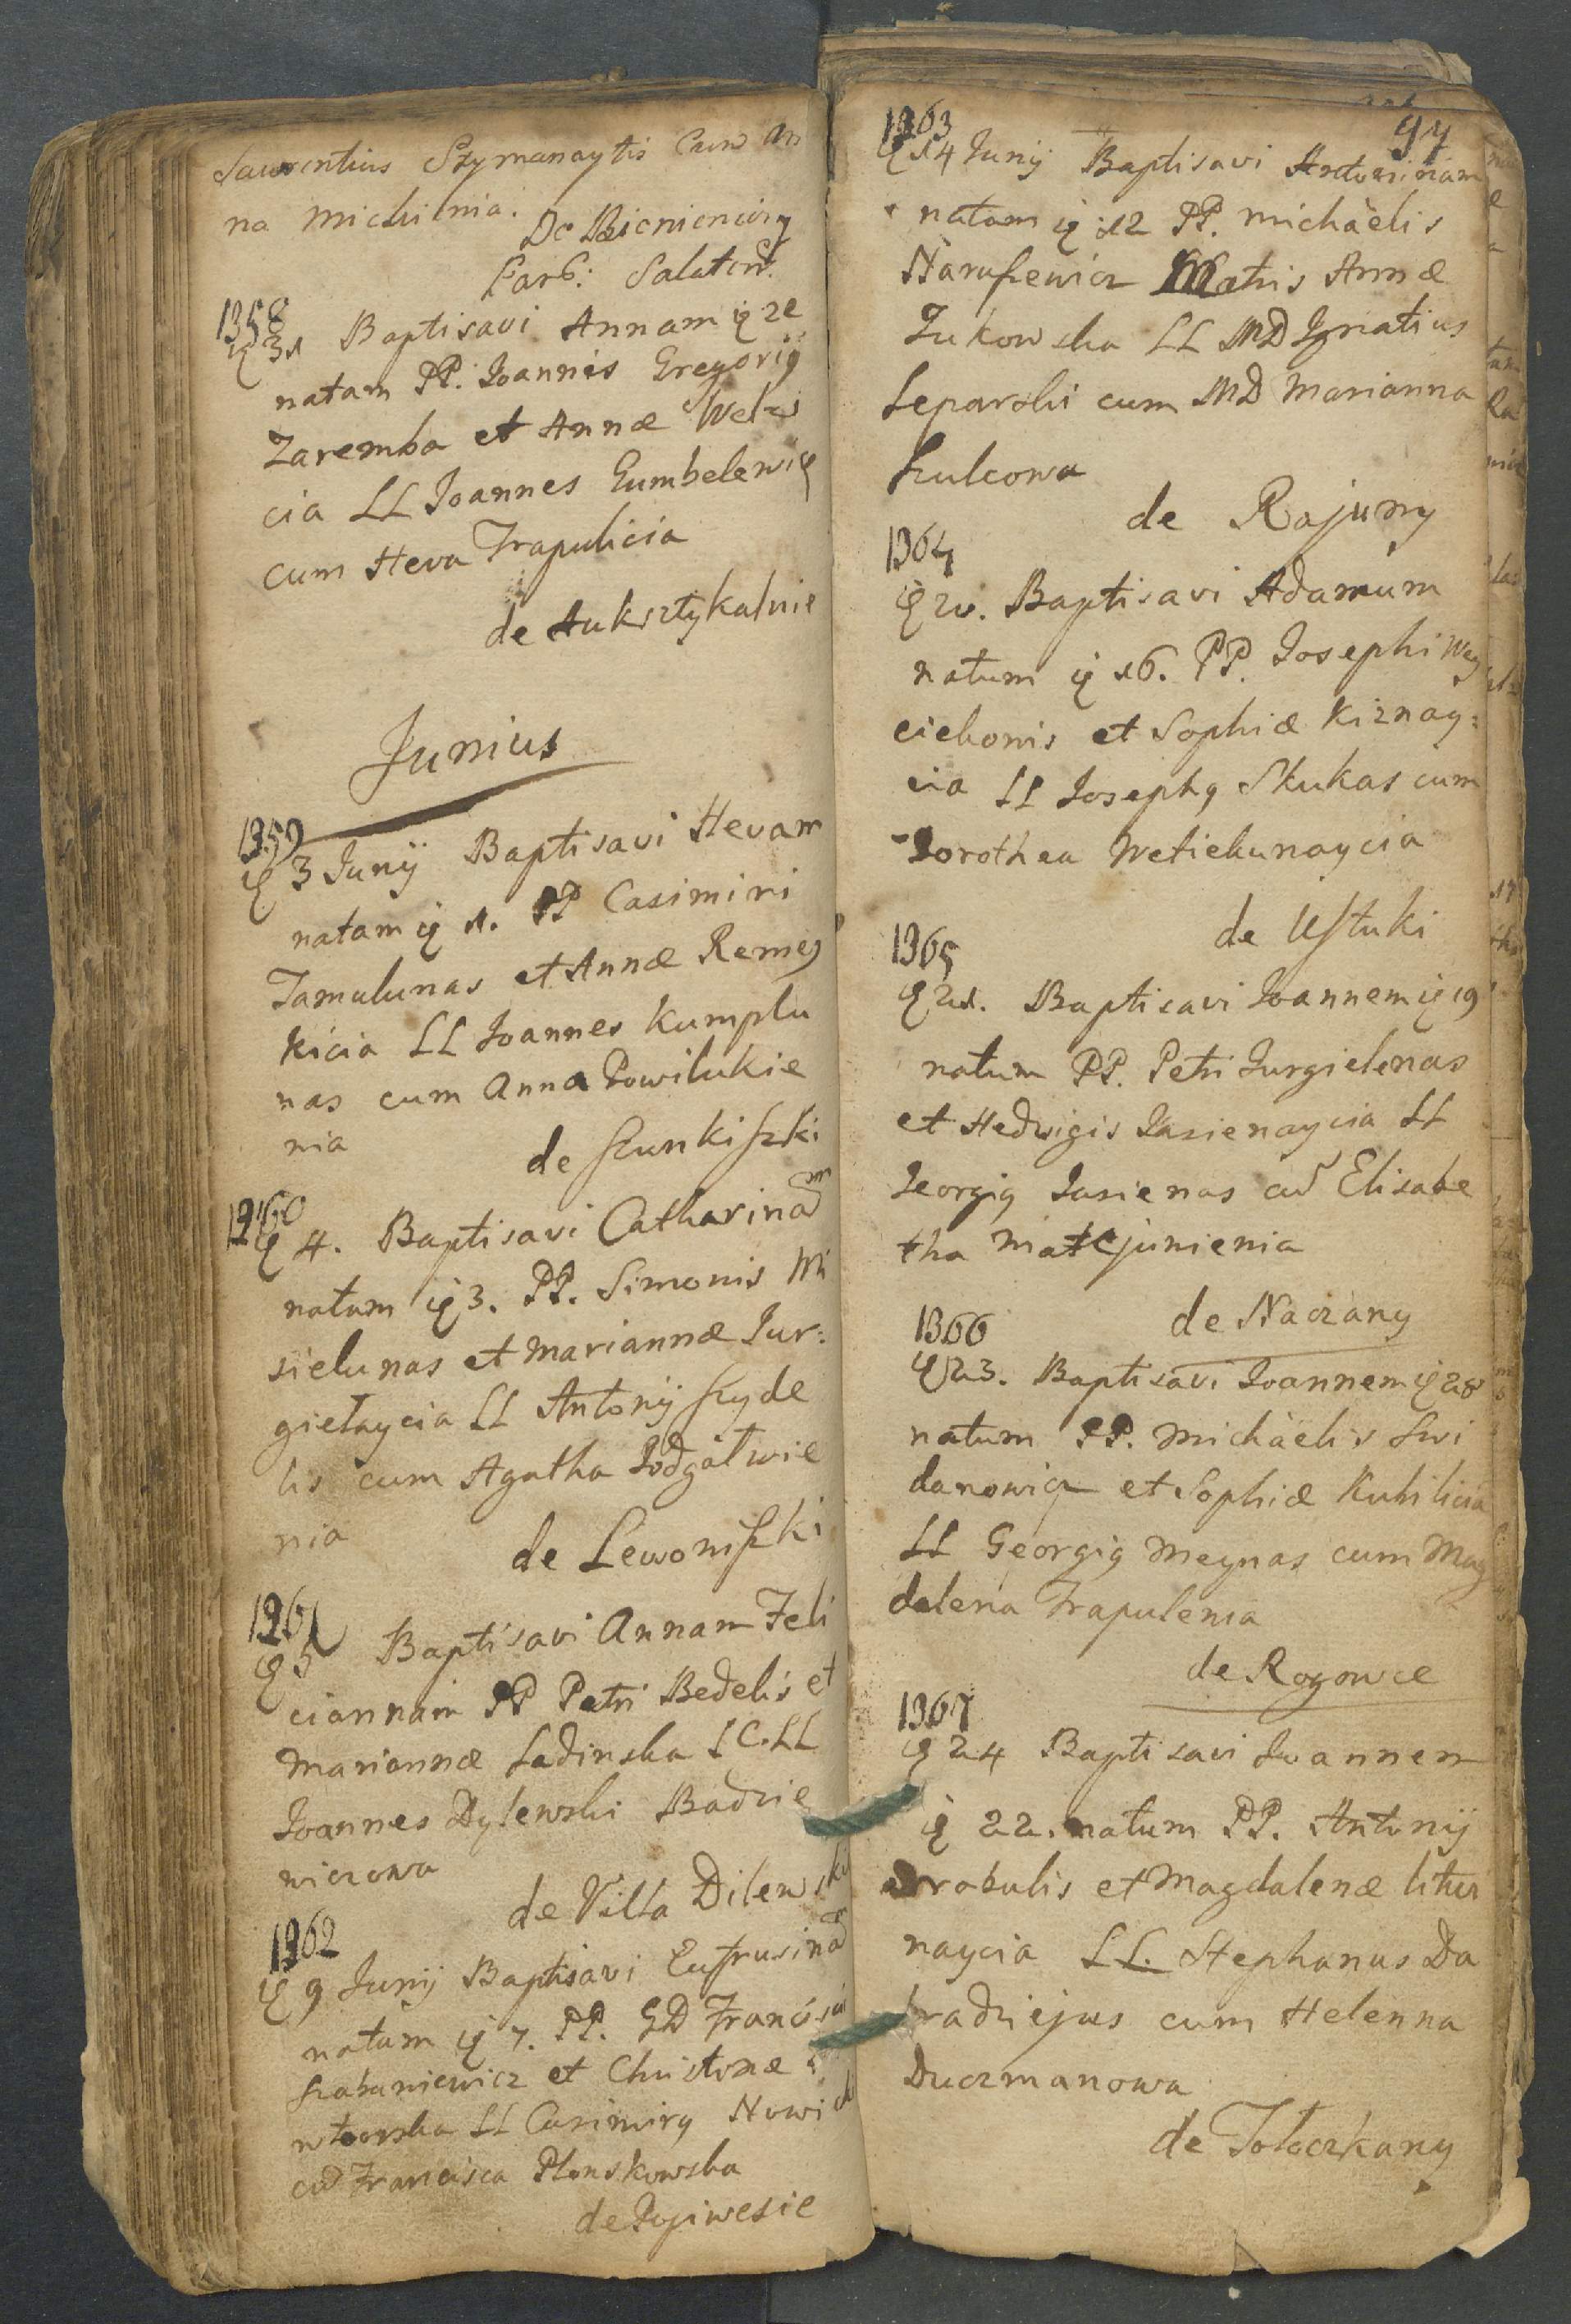 Laurentius Szymanaytis Cum An
na Michilnia.
De Bienieniszy
Par6: Salaten.
1358
31 Baptisavi Annam 20
natam PP. Joannis Gregorij
Zaremba et Annæ Welzi
cia LL Joannes Gumbelewicz
cum Heva Trapulicia
de Auksztykalnie
Junius
1359
3 Junij Baptisavi Hevam
natam 1. PP Casimiri
Tamulunas et Annæ Remey
kicia LL Joannes Kumplu
nas cum Anna Powilukie
nia
de Szunkiszki
1360
4. Baptisavi Catharinam
natam 3. PP. Simonis Mi
sielunas et Mariannæ Jur:
giełaycia LL Antonij Szyde
lis cum Agatha Podgałwie
nia
de Lewoniszki
1361
5 Baptisavi Annam Feli
ciannam PP Petri Bedelis et
Mariannæ Ladinska LC. LL
Joannes Dylewski Badzie
wiczowa
de Villa Dilewski
1362
9 Junij Baptisavi Eufrusinam
natam 7. PP. GD Francisci
Szabuniewicz et Christinæ
LL Casimirg Nowicki
cum Francisca Plonskowska
de Popiwesie
97
1363
14 Junij Baptisavi Antoninam
natam 12 PP. Michäelis
Naruszewicz Matris Annæ
Zukowska LL MD Ignatius
Leparski cum MD Marianna
Szulcowa
de Rajuny
1364
20. Baptisavi Adamum
natum 16. PP. Josephi Way
ciekonis et Sophiæ Kiznay:
cia LL Josephg Skukas cum
Dorothea Wetiekunaycia
de Ustuki
1365
21. Baptisavi Joannem 19
natum PP. Petri Jurgielenas
et Hedvigis Jasienaycia LL
Georgig Jasienas cum Elisabe
tha Matejunienia
de Naczany
1366
23. Baptisavi Joannem 20
natum PP. Michäelis Swi
danowicz et Sophiæ Kubilicia
LL Georgig Meynas cum Mag
dalena Trapulenia
de Rogowce
1367
24 Baptisavi Joannem
22. natum PP. Antonij
Drobulis et Magdalenæ Litwi
naycia LL. Stephanus Da
bradziejus cum Helenna
Duczmanowa
de Tołoczkany